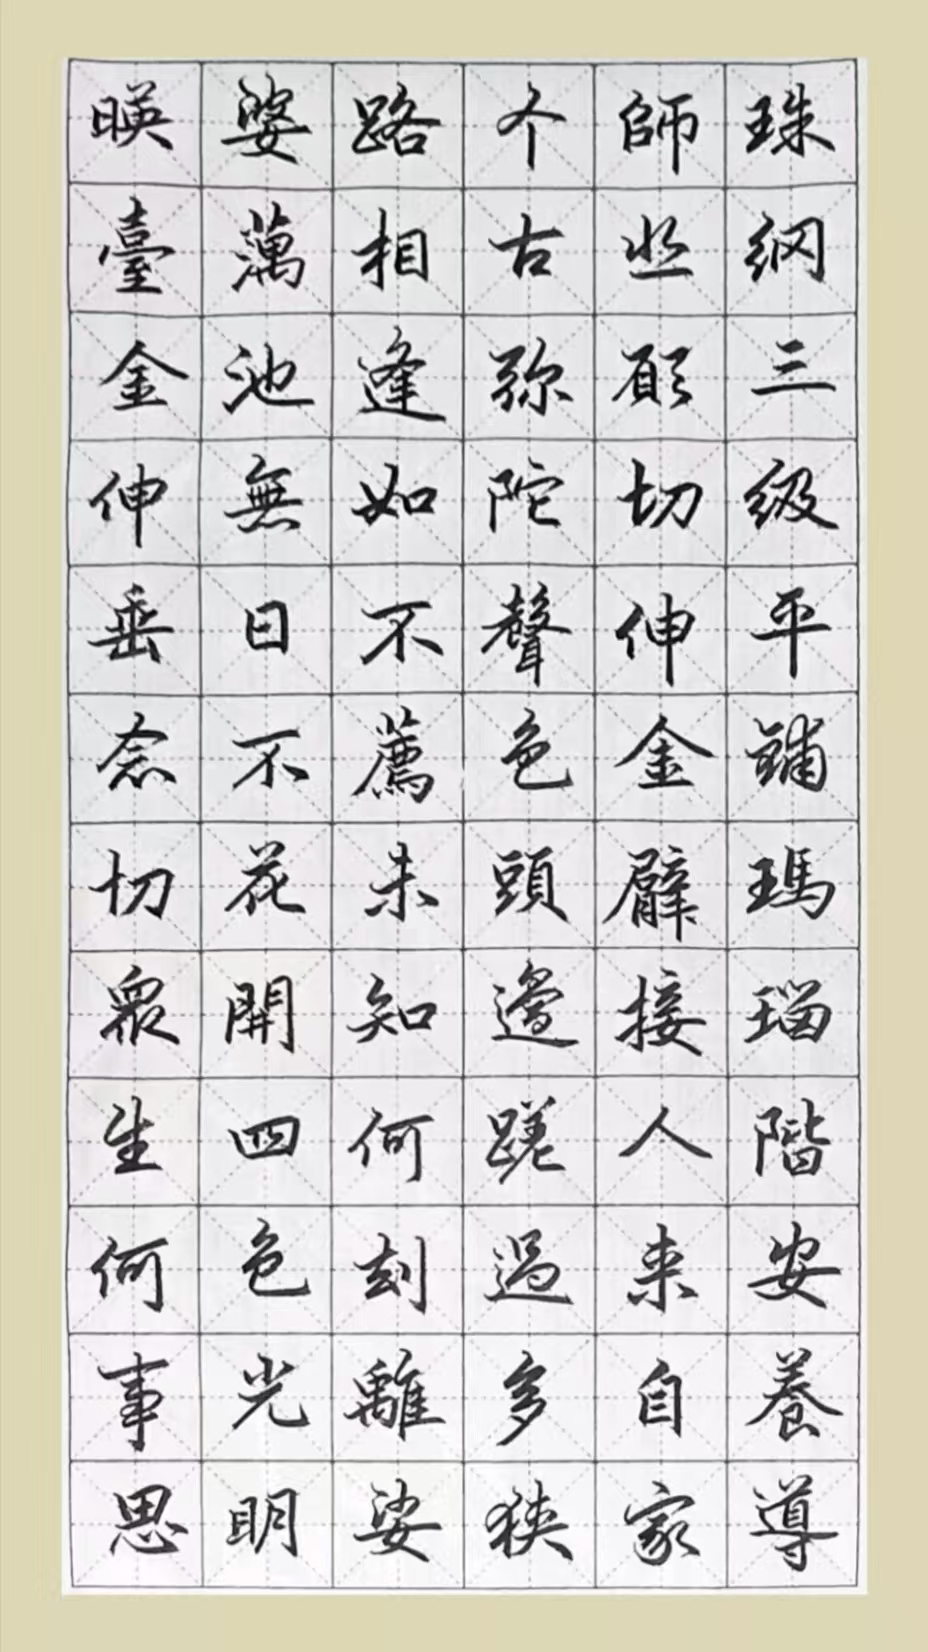 珠纲三级平鋪瑪瑙階安養導
師悲願切伸金臂接人来自家
个古弥陀聲色頭邊蹉過多狹
路相逢如不薦未知何刻離娑
婆蕅池無日不花開四色光明
暎臺金伸垂念切衆生何事思